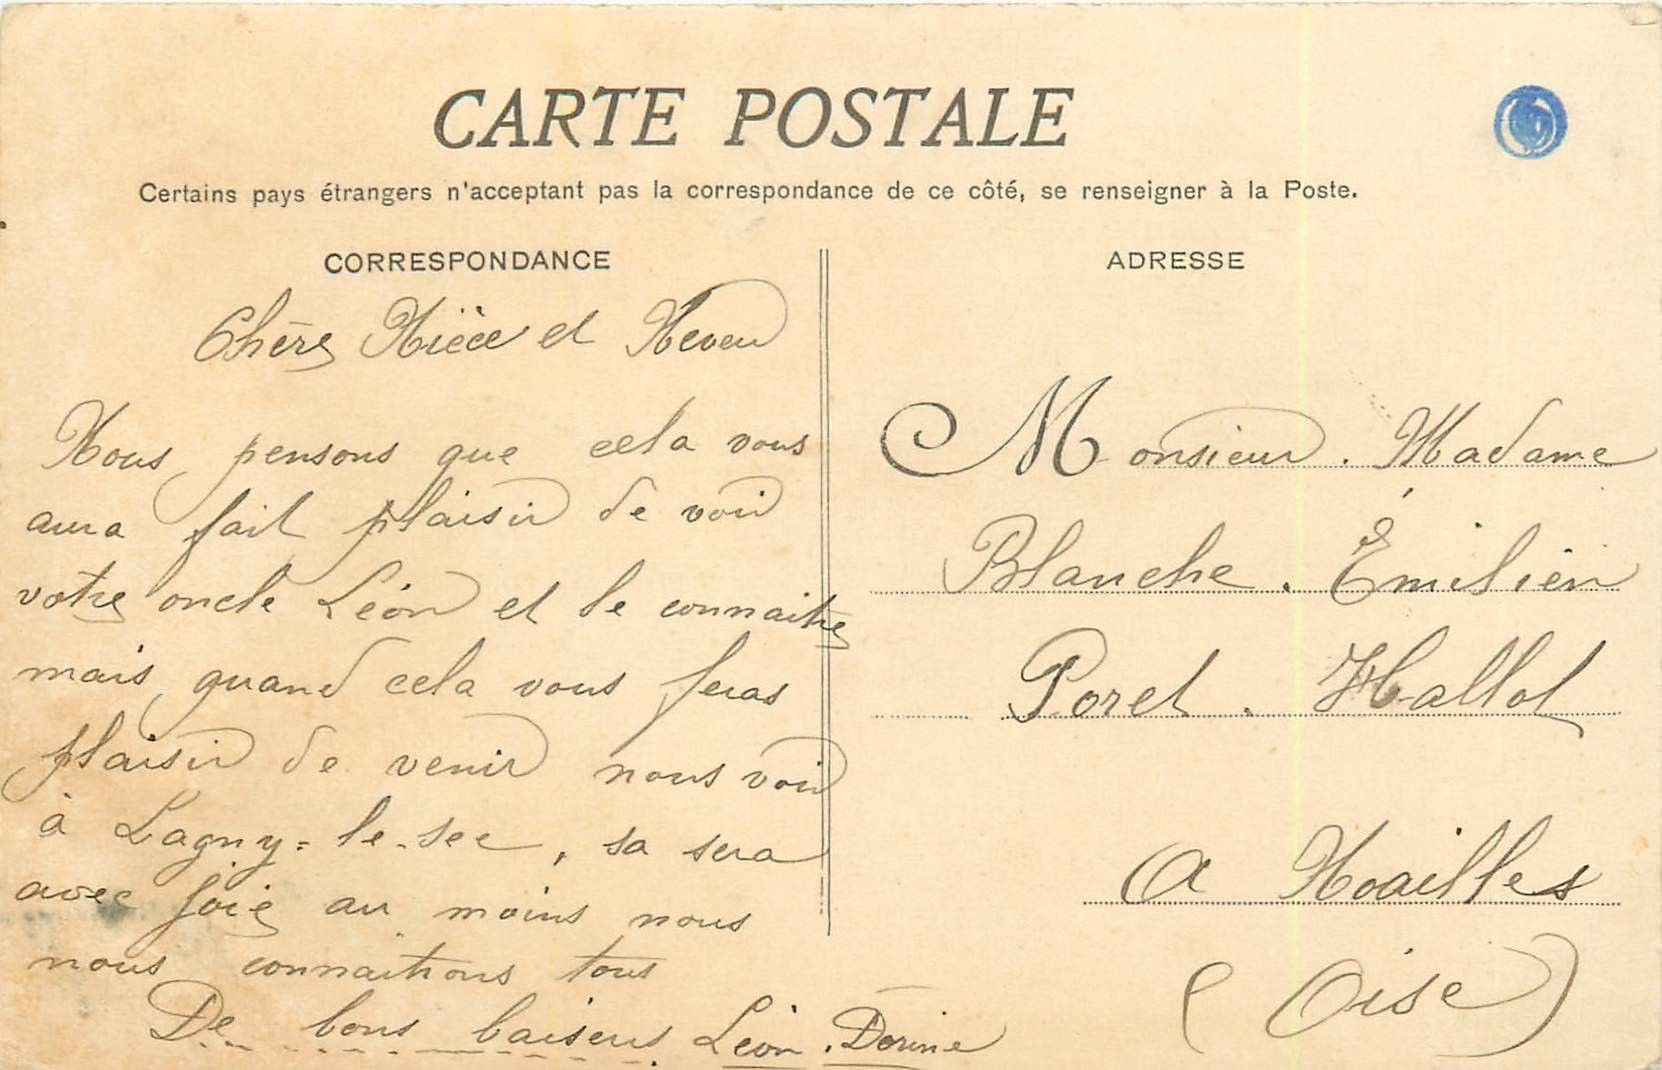 CARTE POSTALE
Certains pays étrangers n'acceptant pas la correspondance de ce côté, se renseigner à la Poste.
CORRESPONDANCE
Chère Nièce et Neveu
Nous pensons que cela vous
aura fait plaisir de voir
votre oncle Léon et le connaitre
mais quand cela vous feras
plaisir de venir nous voir
à Lagny-le-sec, sa sera
avec joie au moins nous
nous connaitrons tous
De bons baisers Léon. Dorine
ADRESSE
Monsieur. Madame
Blanche. Émilien
Poret. Hallot
A Noailles
(Oise)